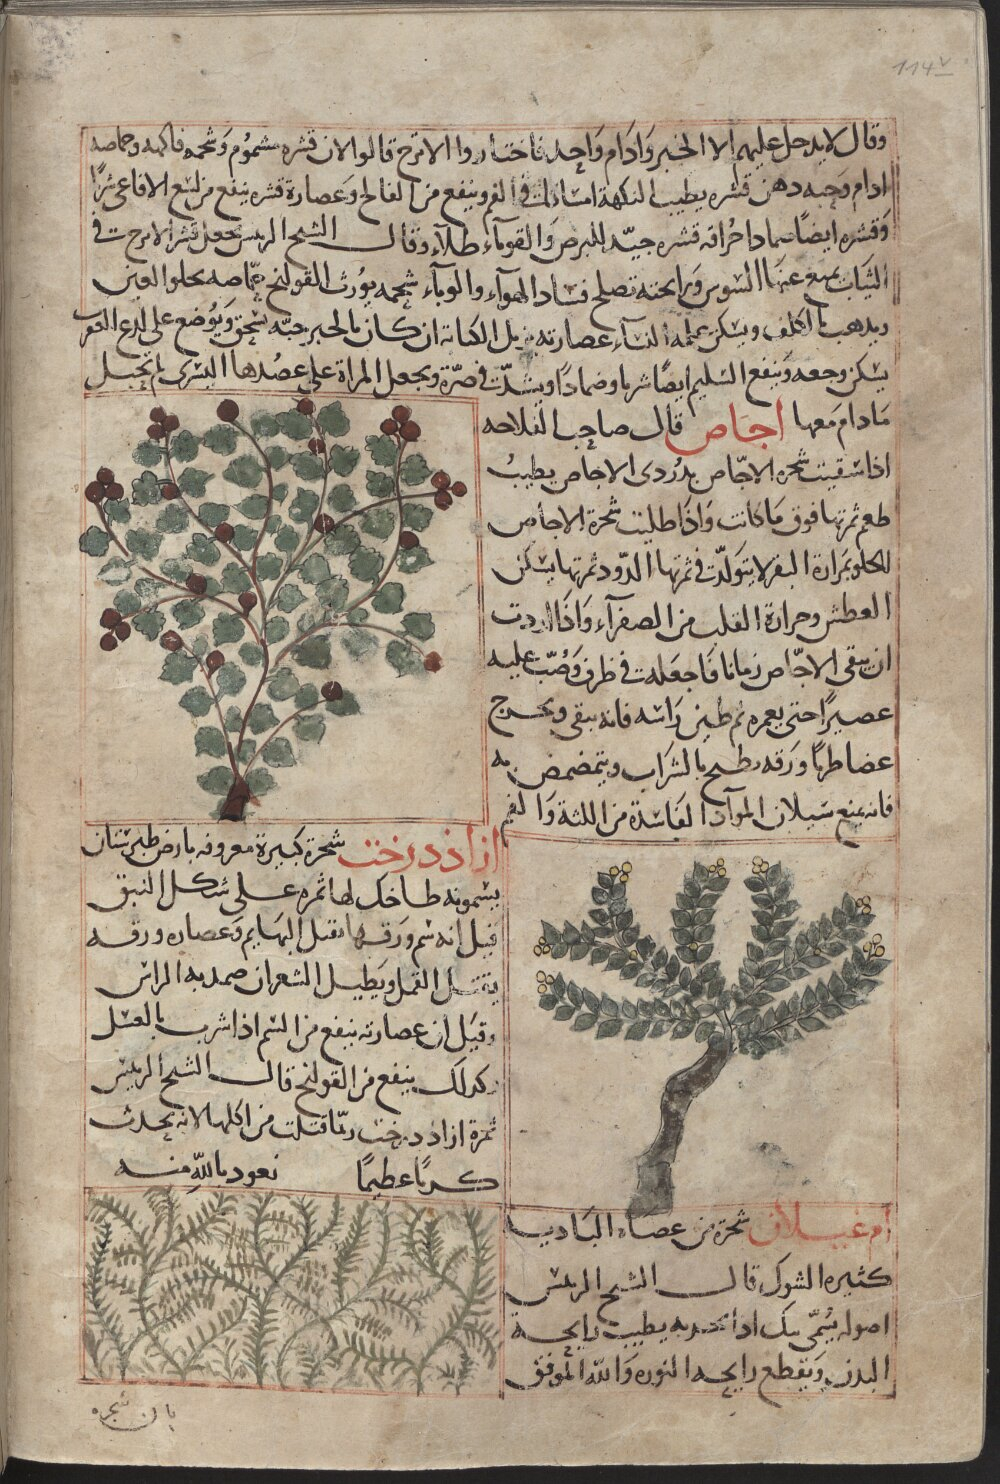 114v
وقال لا يدخل عليهم الا الخبز وادام واحد فاختاروا الاترج قالوا لان قشره مشموم وشحمه فاكهة وحماضه
ادام وحبه دهن قشره يطيب النكهة امساكا في الفم وينفع من الفالج وعصارة قشره ينفع من لسع الافاعي شربا
وقشره ايضا ضمادا حراقة قشره جيد للبرص والقوباء طلاء وقال الشيخ الرئيس يجعل قشر الاترج في
الثياب يمنع عنها السوس ورايحته تصلح فساد الهواء والوباء شحمه يورث القولنج حماضه يجلو العين
ويذهب بالكلف ويسكن غلمة النساء عصارته يزيل الكتابة ان كان بالحبر حبه يسحق ويوضع على لدغ العقرب
يسكن وجعه وينفع السليم ايضا شربا وضمادا ويشدت في صرة ويجعل المراة على عضدها اليسرى لم تحبل
ما دام معها اجاص قال صاحب الفلاحه
اذا سقيت شجرة الاجاص بدردى الاجاص يطيب
طعم ثمرتها فوق ما كانت واذا طليت شجرة الاجاص
الحلو بمرارة البقر لا يتولدت في ثمرتها الدود ثمرتها يسكن
العطش وحرارة القلب من الصفرآء واذا اردت
ان يبقى الاجاص زمانا فاجعله في ظرف وصب عليه
عصيرا حتى يغمره ثم طين راسه فانه يبقى ويخرج
غضا طريا ورقه يطبخ بالشراب ويتمضمض به
فانه يمنع سيلان المواد الفاسدة من اللثة والفم
ازاددرخت شجرة كبيرة معروفه بارض طبرستان
يسمونه طاحك لها ثمره على شكل النبق
قيل انه سم ورقها يقتل البهايم وعصاره ورقه
يقتل القمل ويطيل الشعر ان ضمد به الراس
وقيل ان عصارته ينفع من السم اذا شرب بالعسل
وكذلك ينفع من القولنج قال الشيخ الرييس
ثمرة ازاددرخت ربما قتلت من اكلها لانه يحدث
كربا عظيما نعوذ بالله منه
ام غيلان شجرة من عضاه البادية
كثيره الشوك قال الشيخ الرييس
اصوله يسمى بنك اذا به يطيب رايحة
البدن ويقطع رايحة النورة والله الموفق
بان شجره